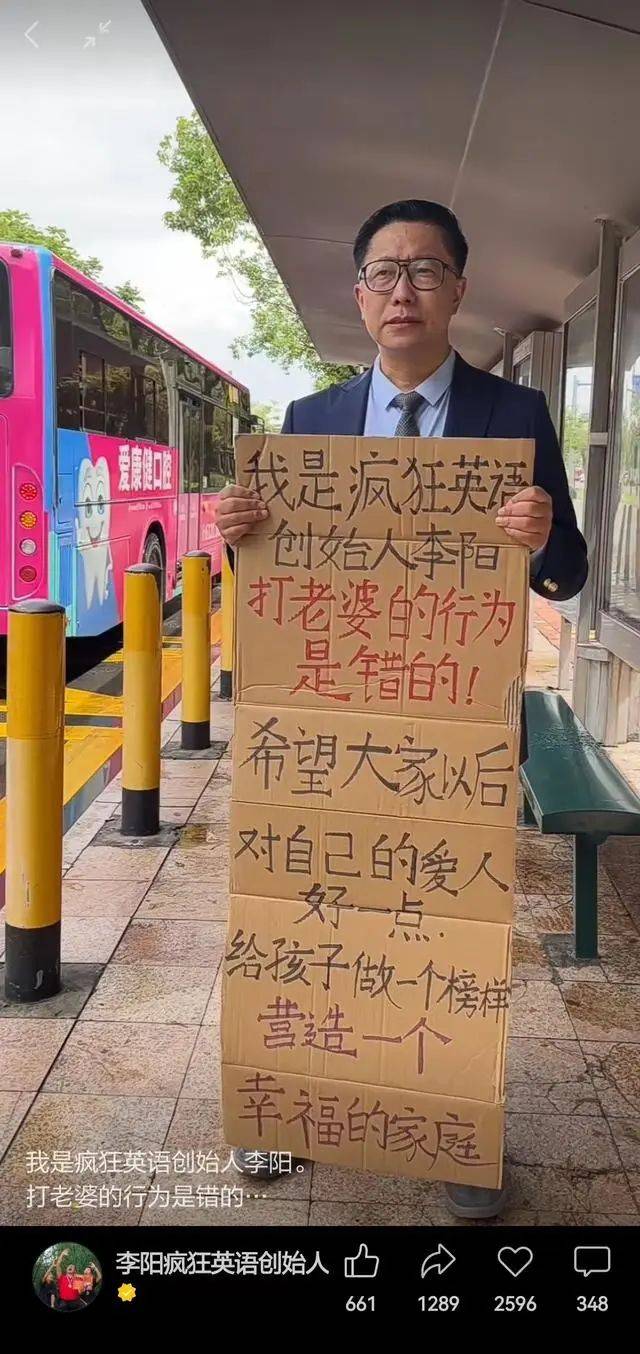 爱康健口腔
我是疯狂英语
创始人李阳
打老婆的行为
是错的！
希望大家以后
对自己的爱人
好一点.
给孩子做一个榜样
营造一个
幸福的家庭
我是疯狂英语创始人李阳。
打老婆的行为是错的…
李阳疯狂英语创始人
661
1289
2596
348